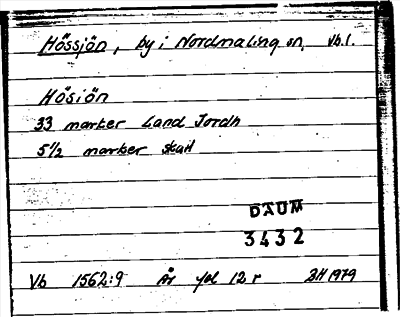 Hössjön, by i Nordmaling sn, Vb.l.
Hösiön
33 marker Land Jordh
5 1/2 marker skatt
DAUM
3432
Vb 1562:9 År fol 12 r BH 1979